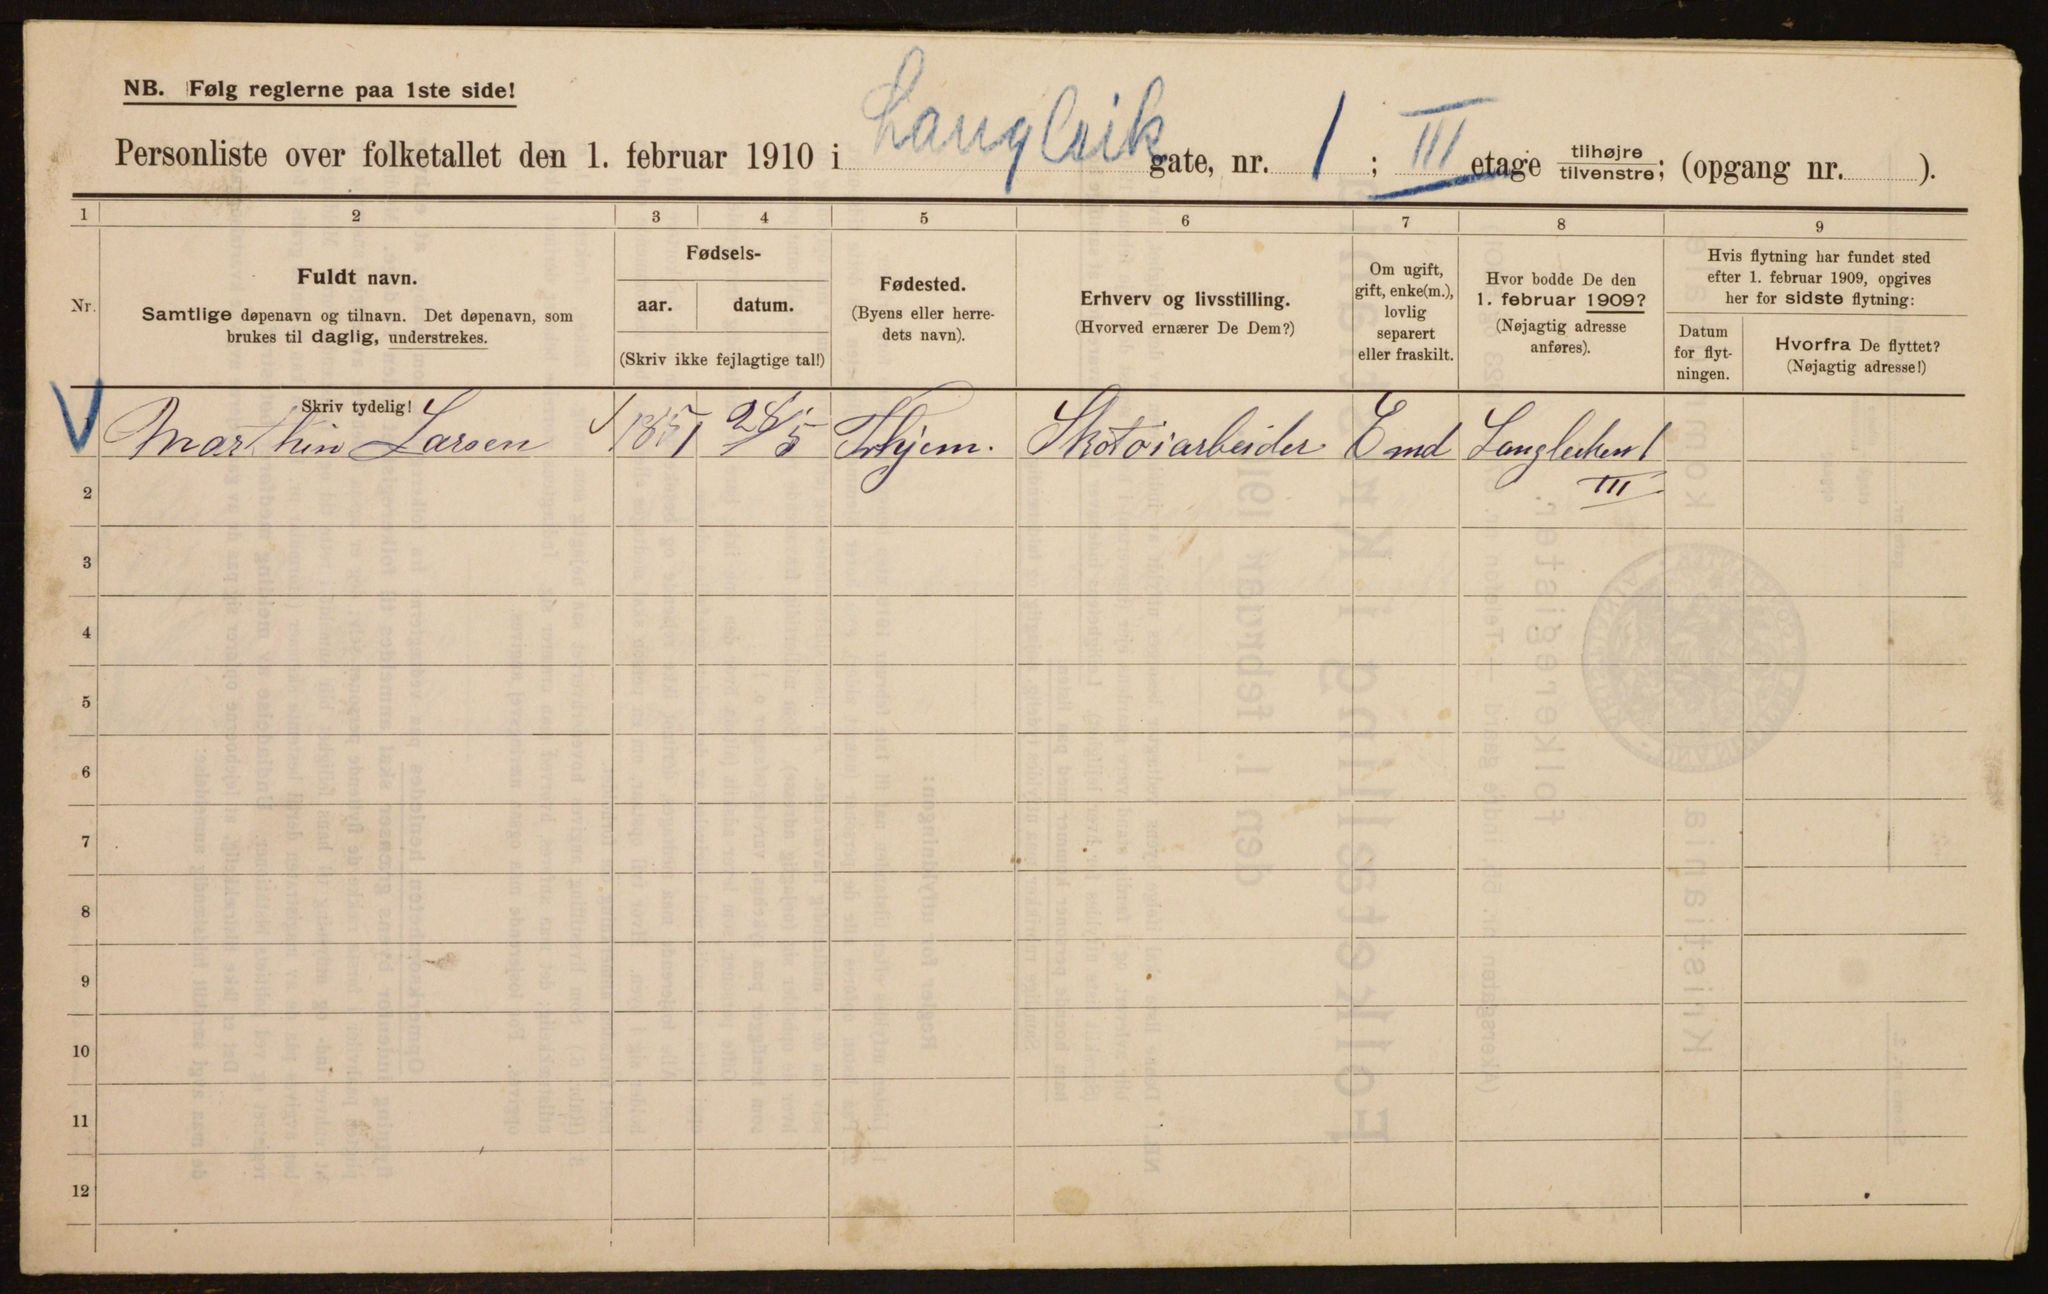 NB. Følg reglerne paa 1ste side!
Personliste over folketallet den 1. februar 1910 i Langleik gate, nr. 1; III etage tilhøjre/tilvenstre; (opgang nr. ).
1 2 3 4 5 6 7 8 9
Nr.
Fuldt navn.
Samtlige døpenavn og tilnavn. Det døpenavn, som
brukes til daglig, understrekes.
Fødsels-
aar. datum.
(Skriv ikke fejlagtige tal!)
Fødested.
(Byens eller herre-
dets navn).
Erhverv og livsstilling.
(Hvorved ernærer De Dem?)
Om ugift,
gift, enke(m.),
lovlig
separert
eller fraskilt.
Hvor bodde De den
1. februar 1909?
(Nøjagtig adresse
anføres).
Hvis flytning har fundet sted
efter 1. februar 1909, opgives
her for sidste flytning:
Datum
for flyt-
ningen.
Hvorfra De flyttet?
(Nøjagtig adresse!)
Skriv tydelig!
1 Marthin Larsen 1851 Thjem. Skotøiarbeider Emd 1
III
2
3
4
5
6
7
8
9
10
11
12